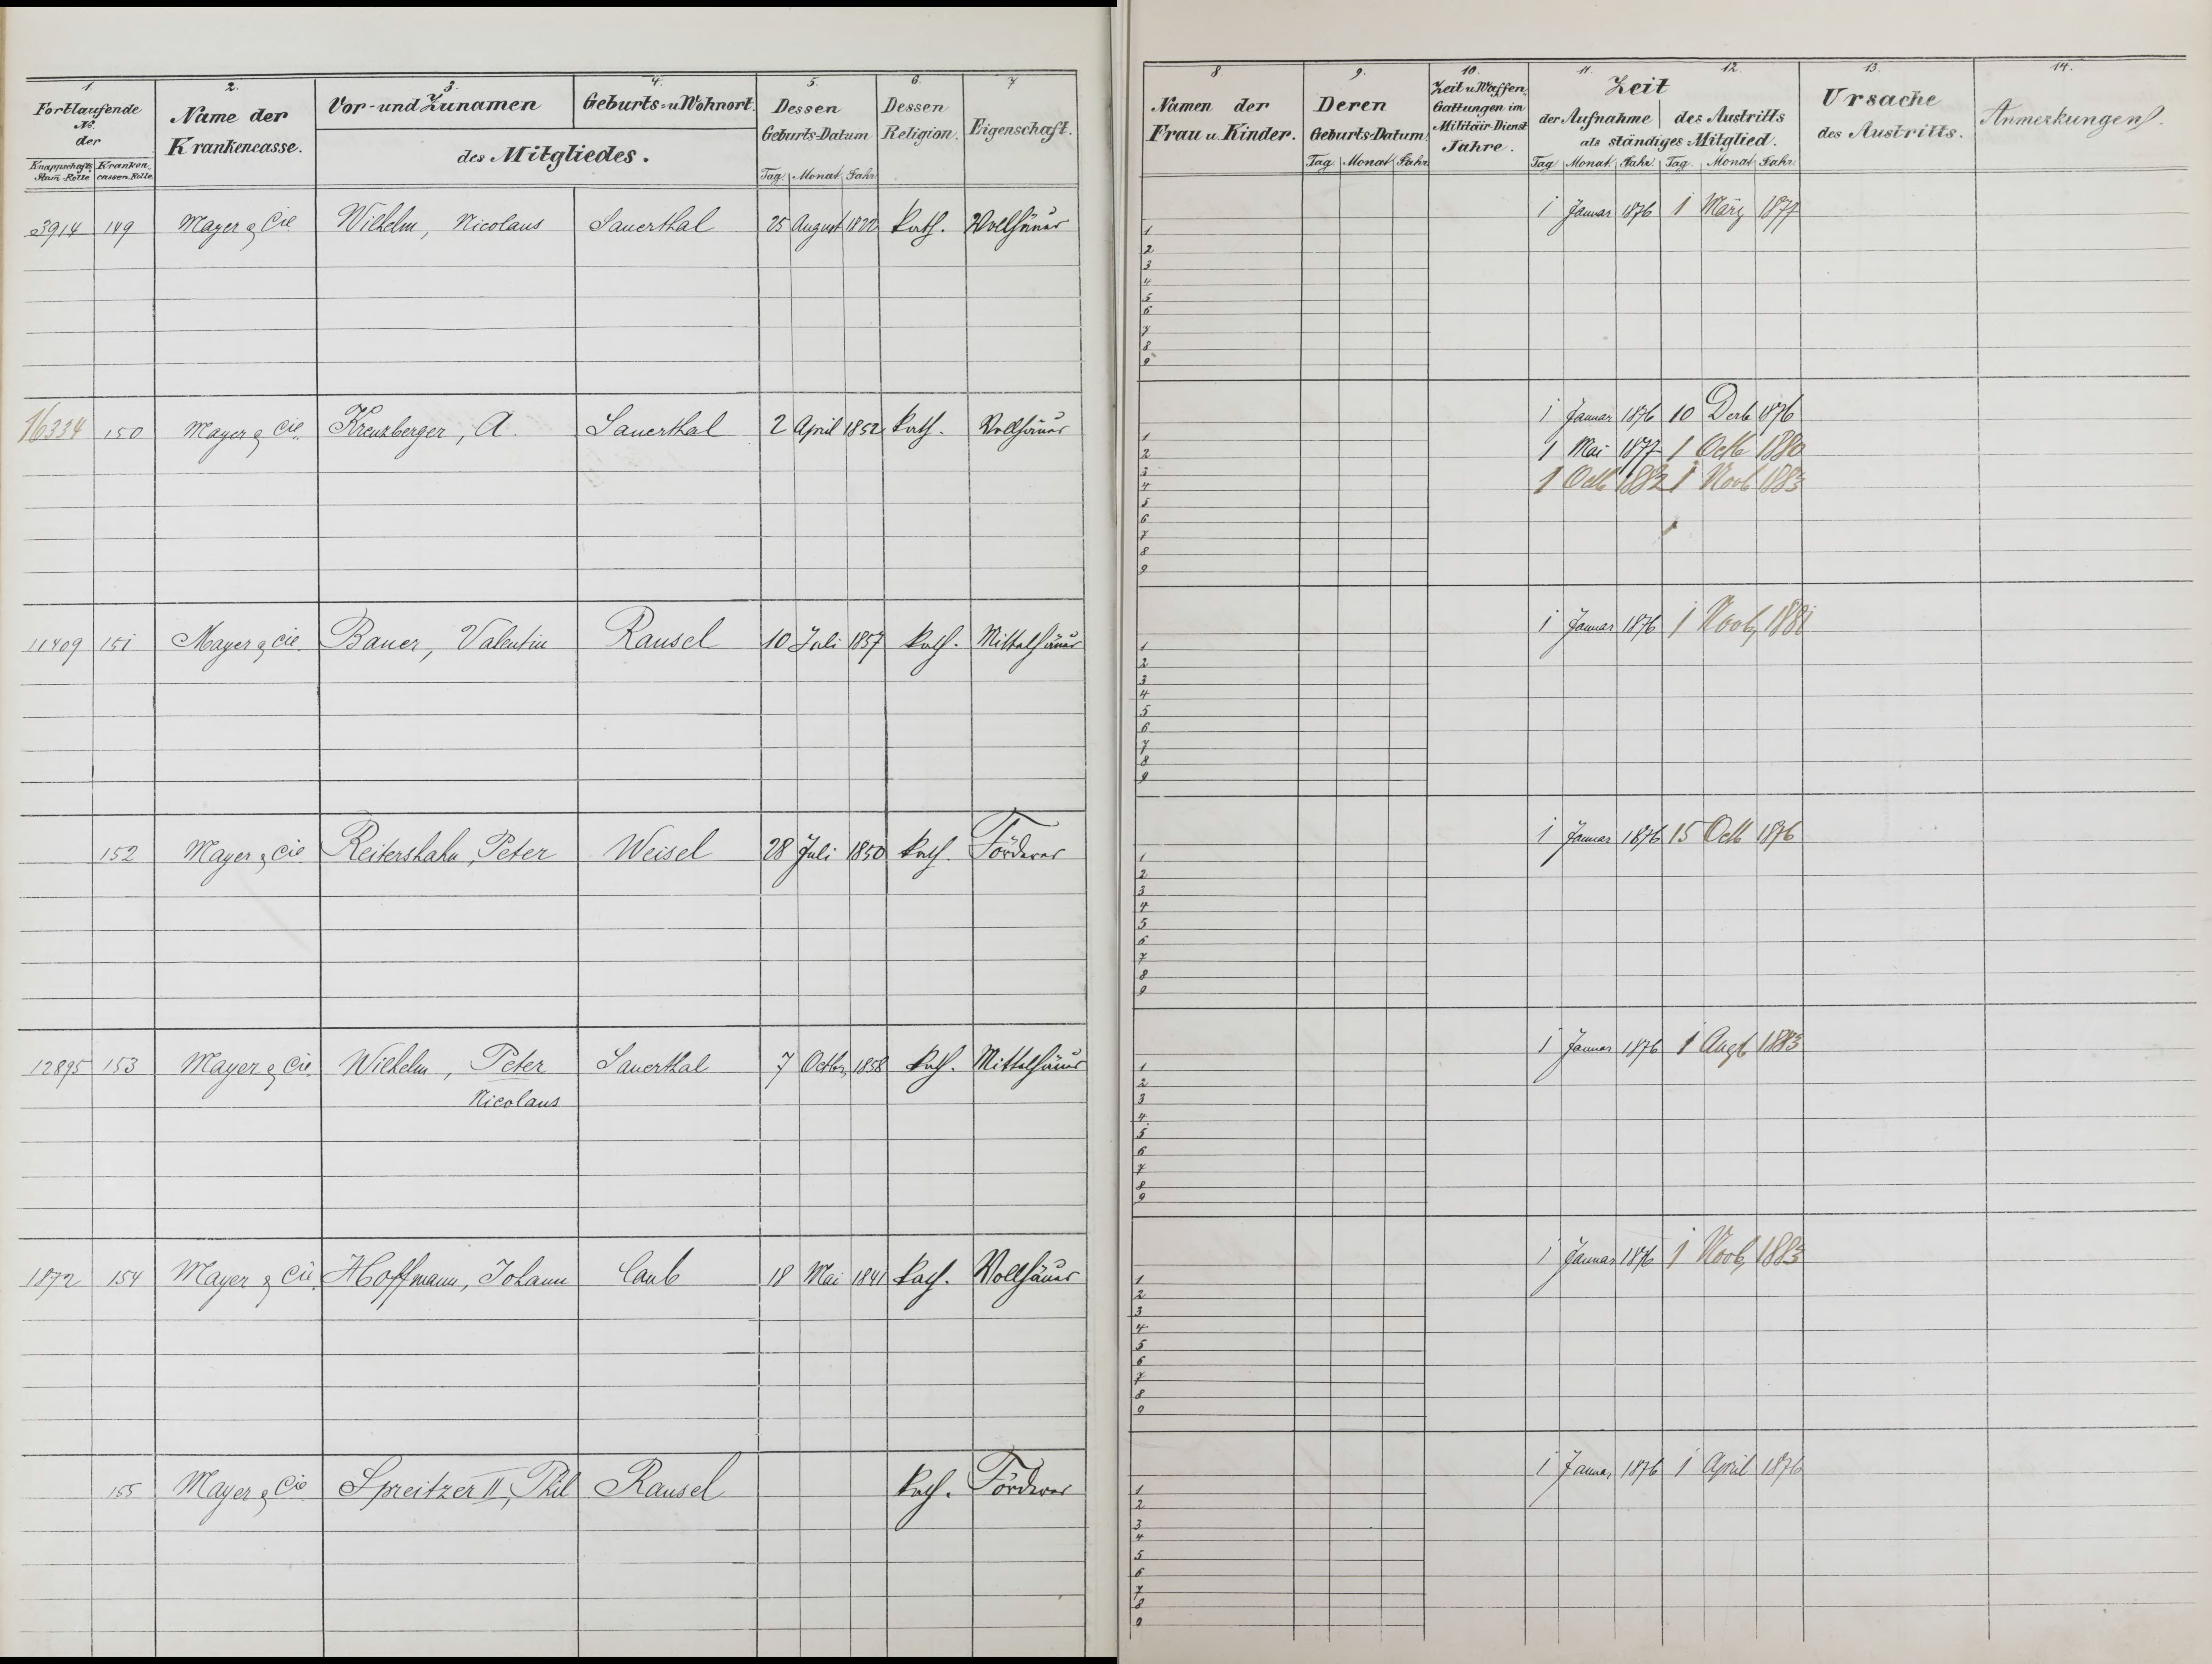 1. 2. 3. 4. 5. 6. 7
Fortlaufende No. der
Knappschafts Stam-Rolle Kranken cassen Rolle
Name der Krankencasse.
Vor- und Zunamen
Geburts- u Wohnort.
des Mitgliedes.
Dessen Geburts-Datum
Tag Monat Jahr
Dessen Religion.
Eigenschaft.
3914 149 Mayer & Cie Wilhelm, Nicolaus Sauerthal 25 August 1822 kath. Vollhäuer
16334 150 Mayer & Cie. Kreuzberger, A. Sauerthal 2 April 1852 kath. Vollhäuer
11409 151 Mayer & Cie. Bauer, Valentin Ransel 10 Juli 1857 kath. Mittelhäuer
152 Mayer & Cie Reitershahn, Peter Weisel 28 Juli 1850 kath. Förderer
12895 153 Mayer & Cie. Wilhelm, Peter Sauerthal 7 Octbr 1858 kath. Mittelhäuer
Nicolaus
1872 154 Mayer & Cie. Hoffmann, Johann Caub 18 Mai 1841 kath. Vollhäuer
155 Mayer & Cie Spreitzer II, Phil Ransel kath. Förderer
8. 9. 10. 11. 12. 13. 14.
Namen der Frau u. Kinder.
Deren Geburts-Datum
Tag Monat Jahr
Zeit u Waffen Gattungen im Militär-Dienst Jahre.
Zeit
der Aufnahme des Austritts
als ständiges Mitglied.
Tag Monat Jahr Tag Monat Jahr.
Ursache des Austritts.
Anmerkungen.
1 Januar 1876 1 März 1877
1
2
3
4
5
6
7
8
9
1 Januar 1876 10 Decb 1876
1 Mai 1877 1 Octb 1880
1 Octb 1882 1 Novb 1883
1
2
3
4
5
6
7
8
9
1 Januar 1876 1 Novb 1881
1
2
3
4
5
6
7
8
9
1 Januar 1876 15 Octb 1876
1
2
3
4
5
6
7
8
9
1 Januar 1876 1 Augt 1883
1
2
3
4
5
6
7
8
9
1 Januar 1876 1 Novb 1883
1
2
3
4
5
6
7
8
9
1 Januar 1876 1 April 1876
1
2
3
4
5
6
7
8
9